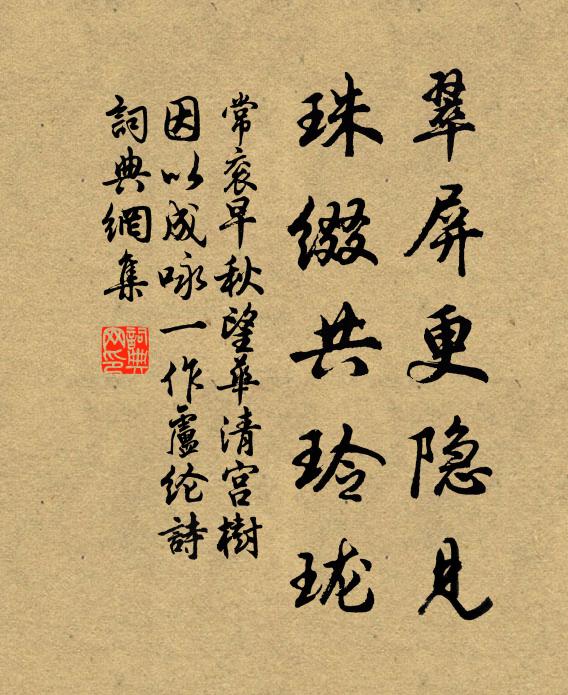 翠屏更隐见
珠缀共玲珑
常衮早秋望華清宫樹
因以成咏一作盧纶詩
詞典網集
詞典网印